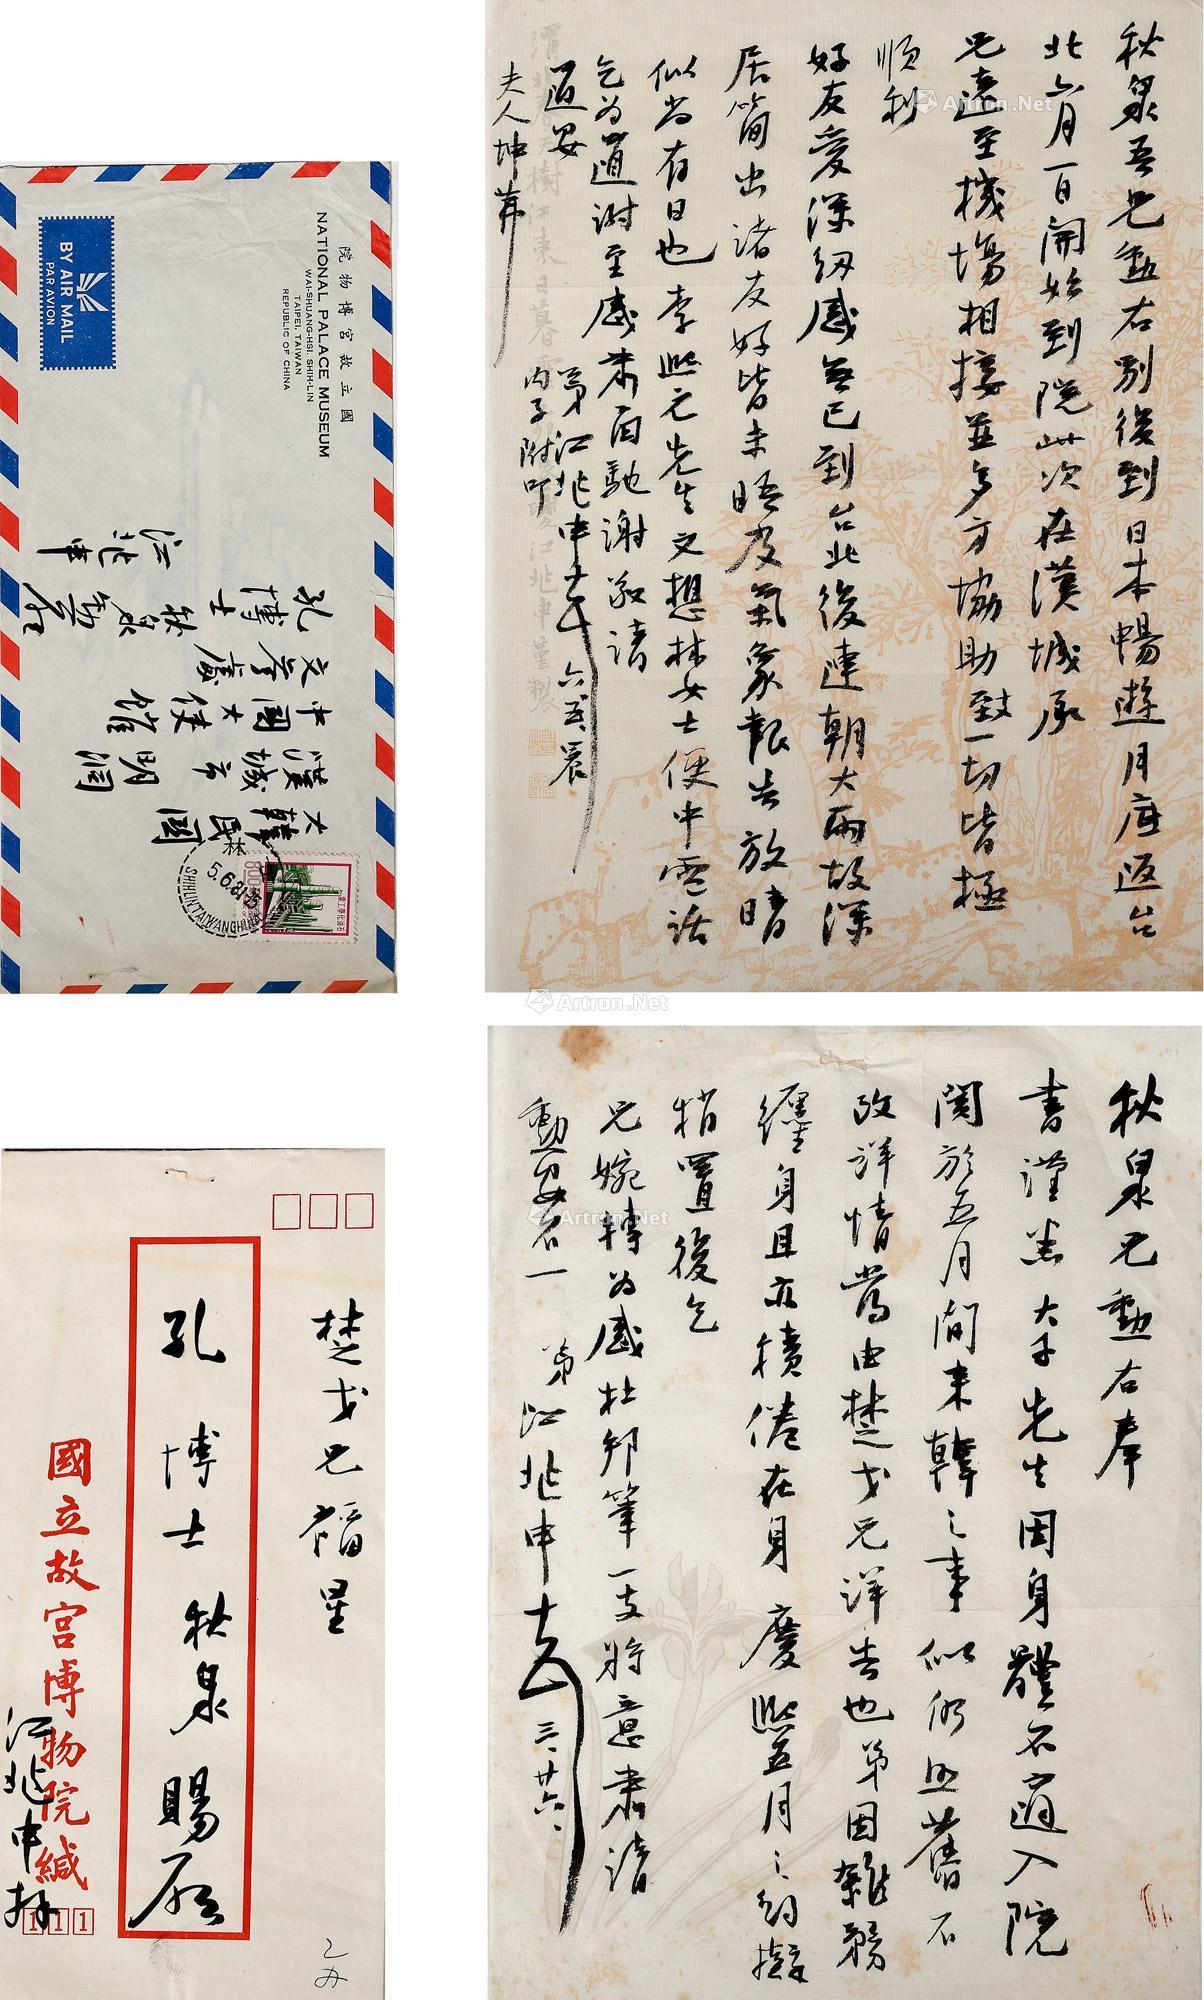 秋泉吾兄勳右別後到日本暢遊月底返台
北六月一日開始到院此次在漢城承
兄遠至機場相接並多方協助致一切皆極
順利
好友愛深紉感無已到台北後連朝大雨故深
居簡出諸友好皆未晤及氣象報告放晴
似尚有日也李熙元先生文想林女士便中電話
乞為道謝至感肅函馳謝敬請
道安
弟江兆申 六、五、晨
夫人坤茀
內子附叩
國立故宮博物院
NATIONAL PALACE MUSEUM
WAI-SHUANG-HSI, SHIH-LIN
TAIPEI, TAIWAN
REPUBLIC OF CHINA
BY AIR MAIL
PAR AVION
大韓民國
漢城市明洞
中國大使館
文參處
孔博士秋泉勳啟
江兆申
5.6.81
SHIHLIN TAIWAN
800
石油化學工業
秋泉兄勳右奉
書謹悉大千先生因身體不適入院
關於五月間來韓之事似仍照舊不
改詳情當由楚戈兄詳告也弟因雜務
纏身且亦積倦在身慶熙五月之約擬
措置後乞
兄婉轉為感杜邦筆一支將意肅請
勳安不一
弟江兆申 三、廿六、
楚戈兄福星
孔博士秋泉賜啟
國立故宮博物院緘
江兆申拜
111
Artron.Net
Artron.Net
Artron.Net